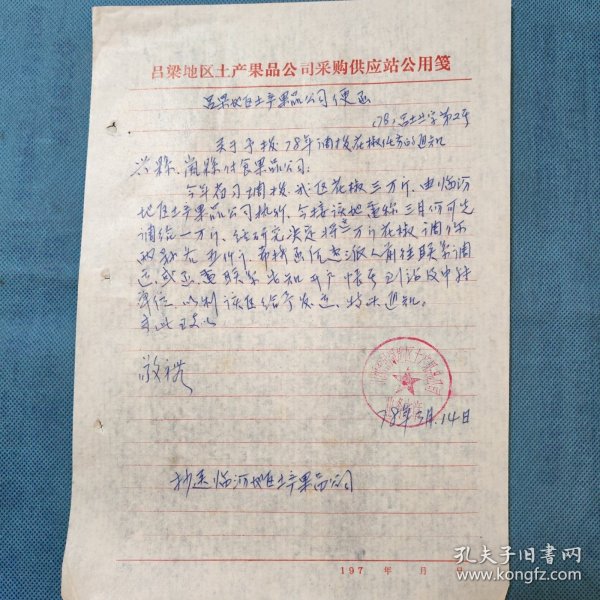 吕梁地区土产果品公司采购供应站公用笺
吕梁地区土产果品公司便函
(78)吕土业字第2号
关于予拨78年调拨花椒任务的通知
兴县、岚县付食果品公司:
今年省司调拨我区花椒三万斤,由临汾
地区土产果品公司执行,今接该地重称三月份可先
调给一万斤,经研究决定将一万斤花椒调你
派人前往联系调
运,或函重联系告知开户帐号到站及中转
单位,以利该区给予发运,特此通知。
致以
敬礼
78年3月14日
抄送临汾地区土产果品公司
197 年 月 日
孔夫子旧书网
www.kongfz.com